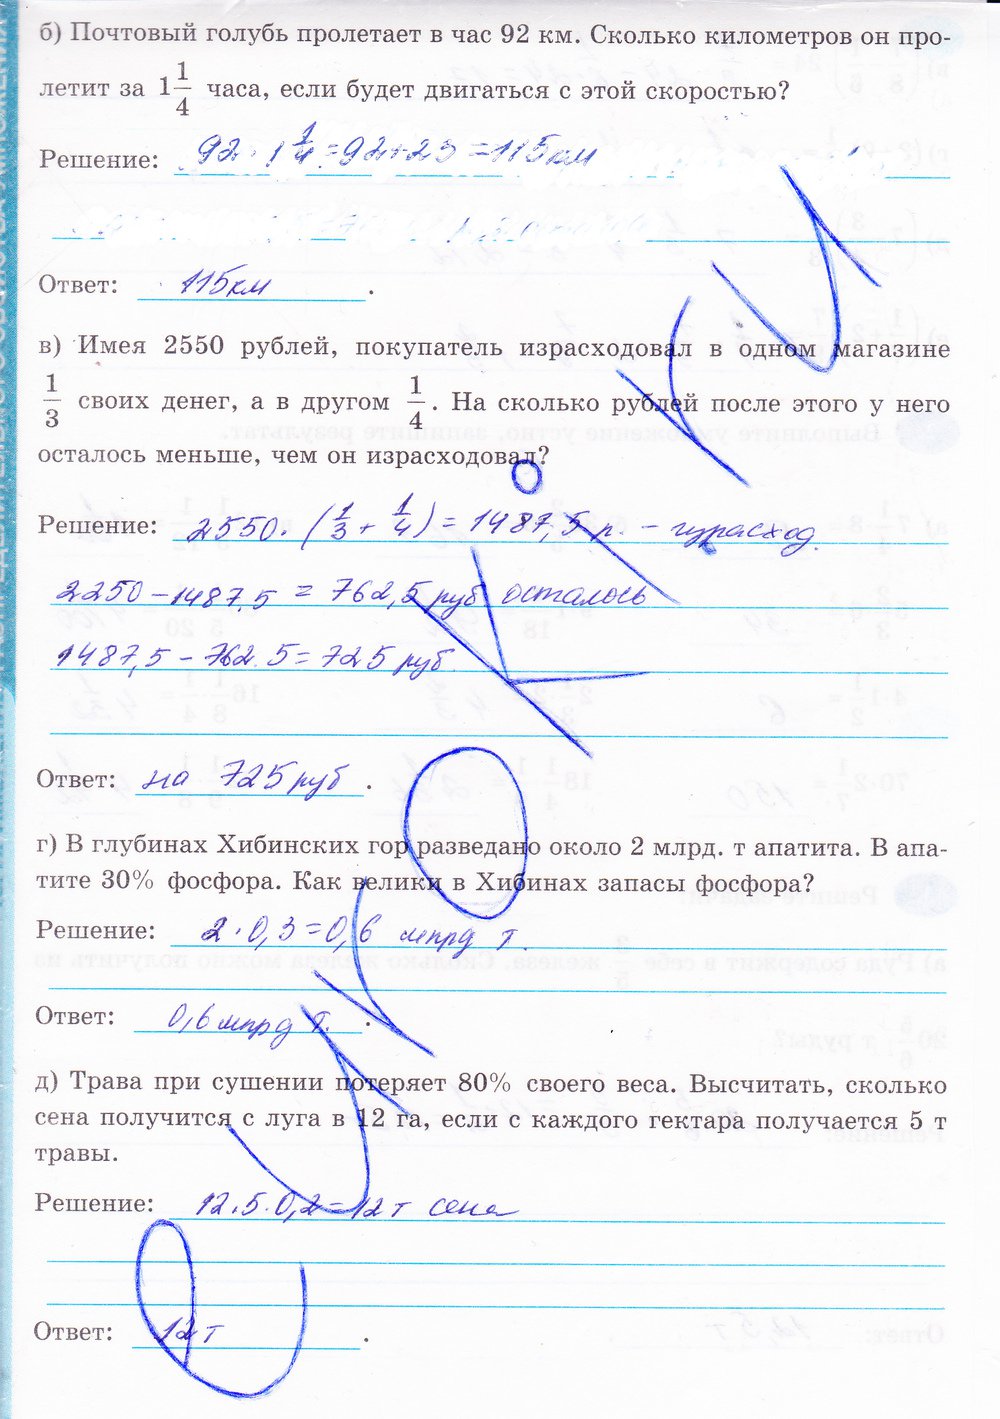 б) Почтовый голубь пролетает в час 92 км. Сколько километров он про-
летит за 1 1/4 часа, если будет двигаться с этой скоростью?
Решение: 92 · 1 1/4 = 92+23 = 115 км
Ответ: 115 км .
в) Имея 2550 рублей, покупатель израсходовал в одном магазине
1/3 своих денег, а в другом 1/4. На сколько рублей после этого у него
осталось меньше, чем он израсходовал?
Решение: 2550 · (1/3 + 1/4) = 1487,5 р. –
2250 – 1487,5 = 762,5 руб осталось
1487,5 – 762.5 = 725 руб
Ответ: на 725 руб .
г) В глубинах Хибинских гор разведано около 2 млрд. т апатита. В апа-
тите 30% фосфора. Как велики в Хибинах запасы фосфора?
Решение: 2 · 0,3 = 0,6 млрд т.
Ответ: 0,6 млрд т. .
д) Трава при сушении потеряет 80% своего веса. Высчитать, сколько
сена получится с луга в 12 га, если с каждого гектара получается 5 т
травы.
Решение: 12 · 5 · 0,2 = 12 т сена
Ответ: 12 т .